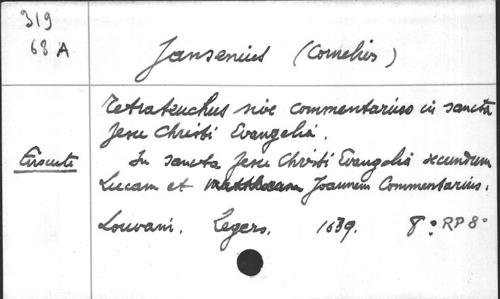 319
68 A
Jansenius (Cornelius)
Tetrateuchus sive commentarius in sancta
Jesu Christi Evangelia.
In sancta Jesu Christi Evangelia secundum
Lucam et Joannem Commentarius.
Louvani. Zegers. 1639. 8° RP 8°